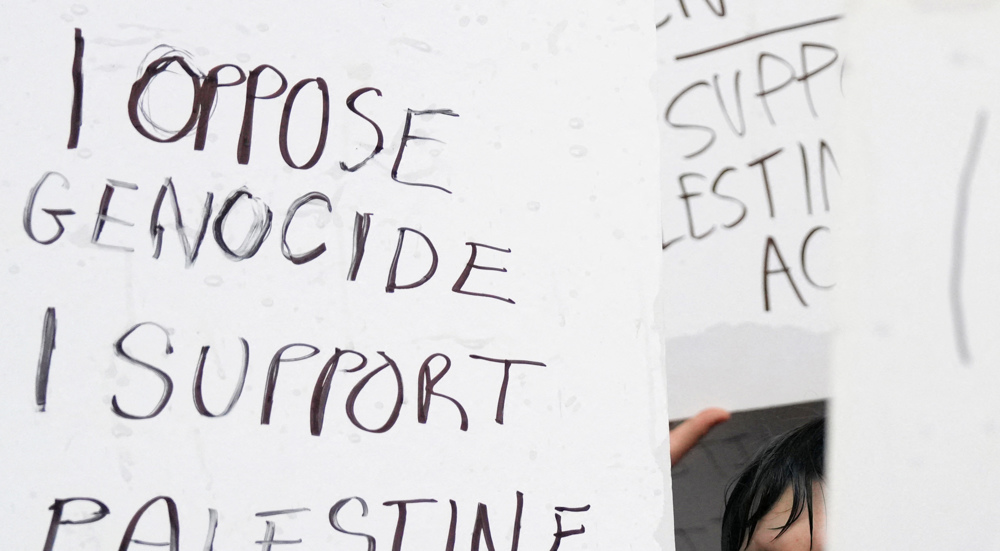 I OPPOSE
GENOCIDE
I SUPPORT
PALESTINE
SUPP
LESTIN
AC